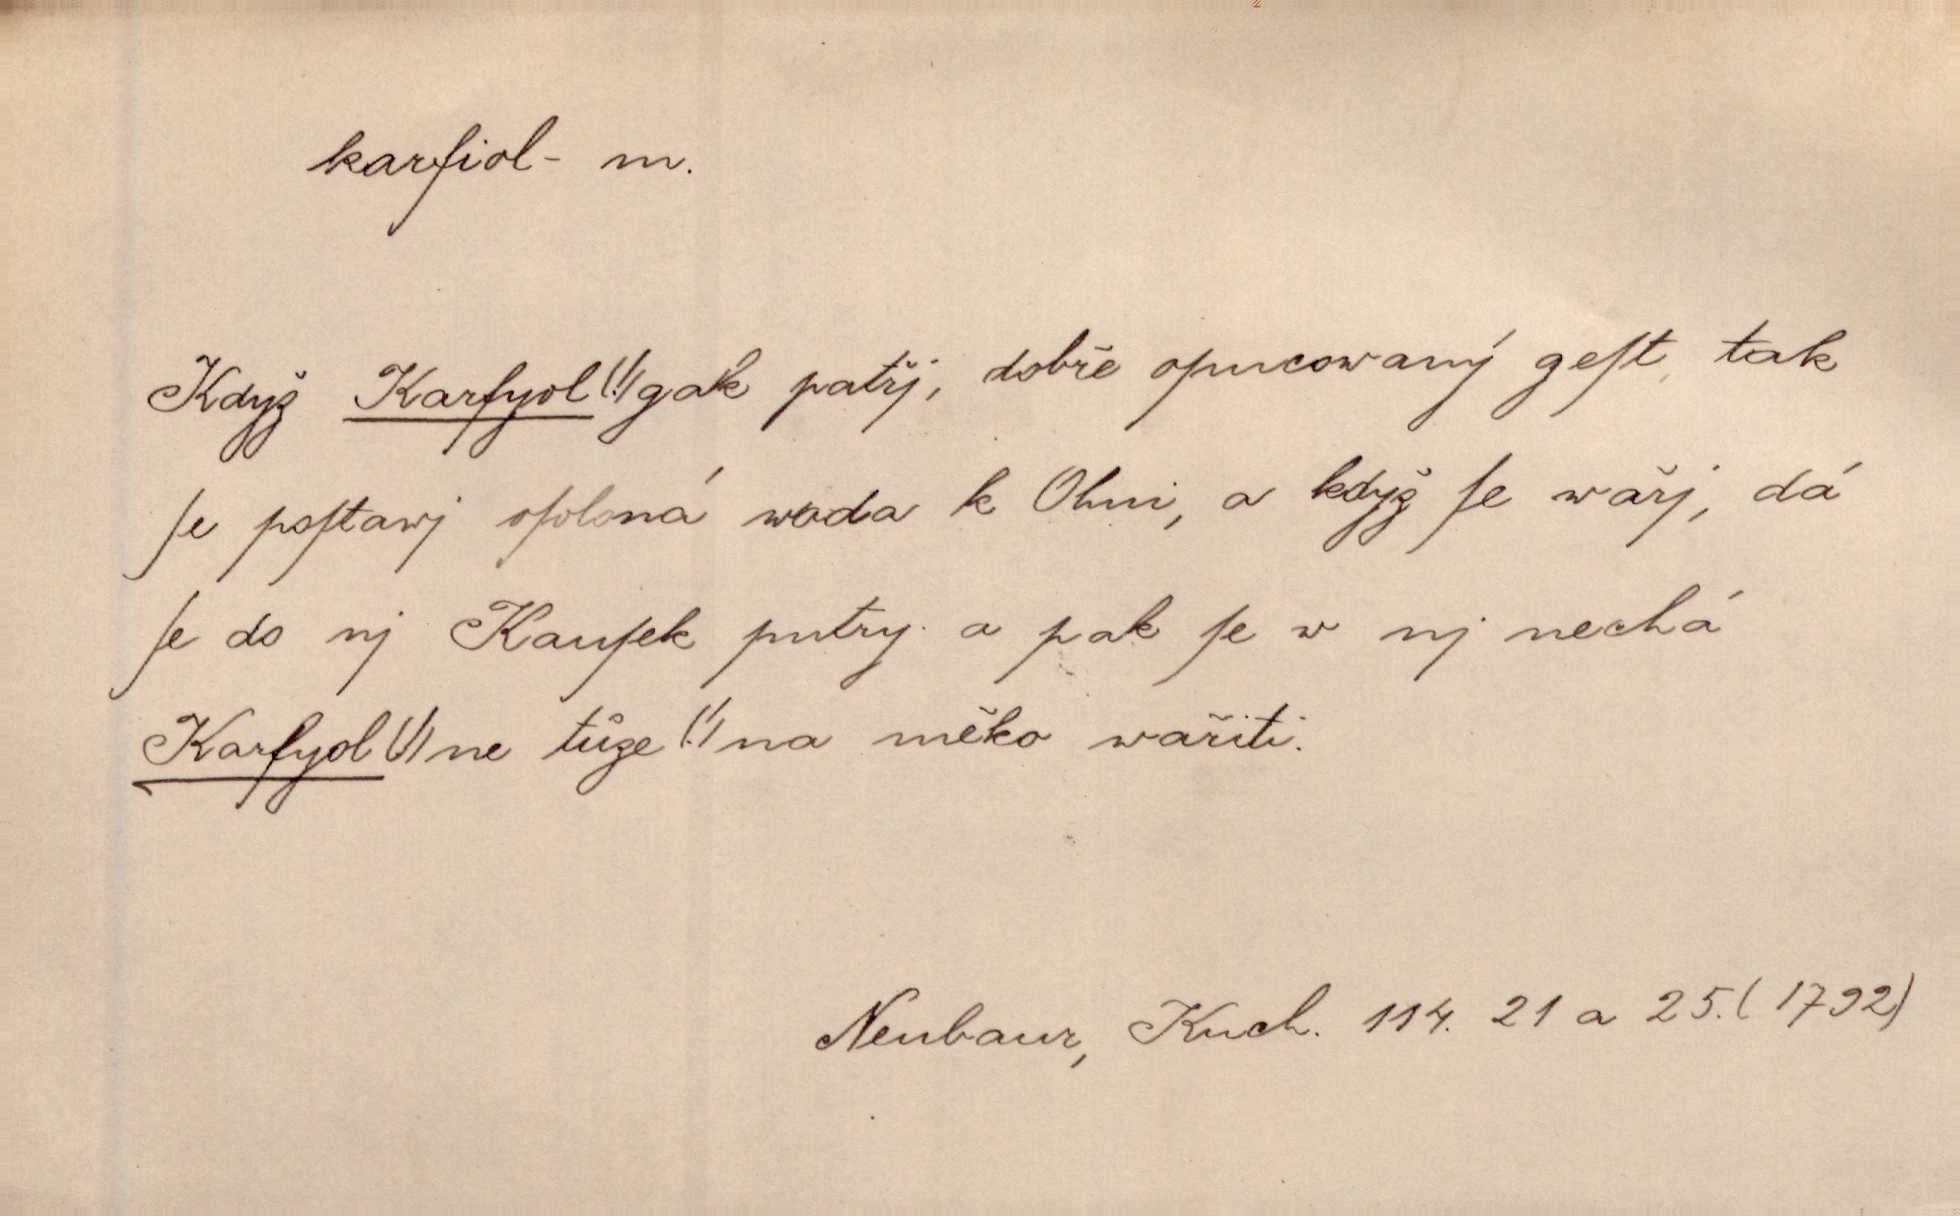 karfiol - m.
Když Karfyol (!) gak patřj, dobře opucowaný geſt, tak
ſe poſtawj oſolená woda k Ohni, a když ſe wařj, dá
ſe do nj Kauſek putry a pak ſe w nj nechá
Karfyol (!) ne tůze (!) na měko wařiti.
Neubaur, Kuch. 114. 21 a 25. (1792)